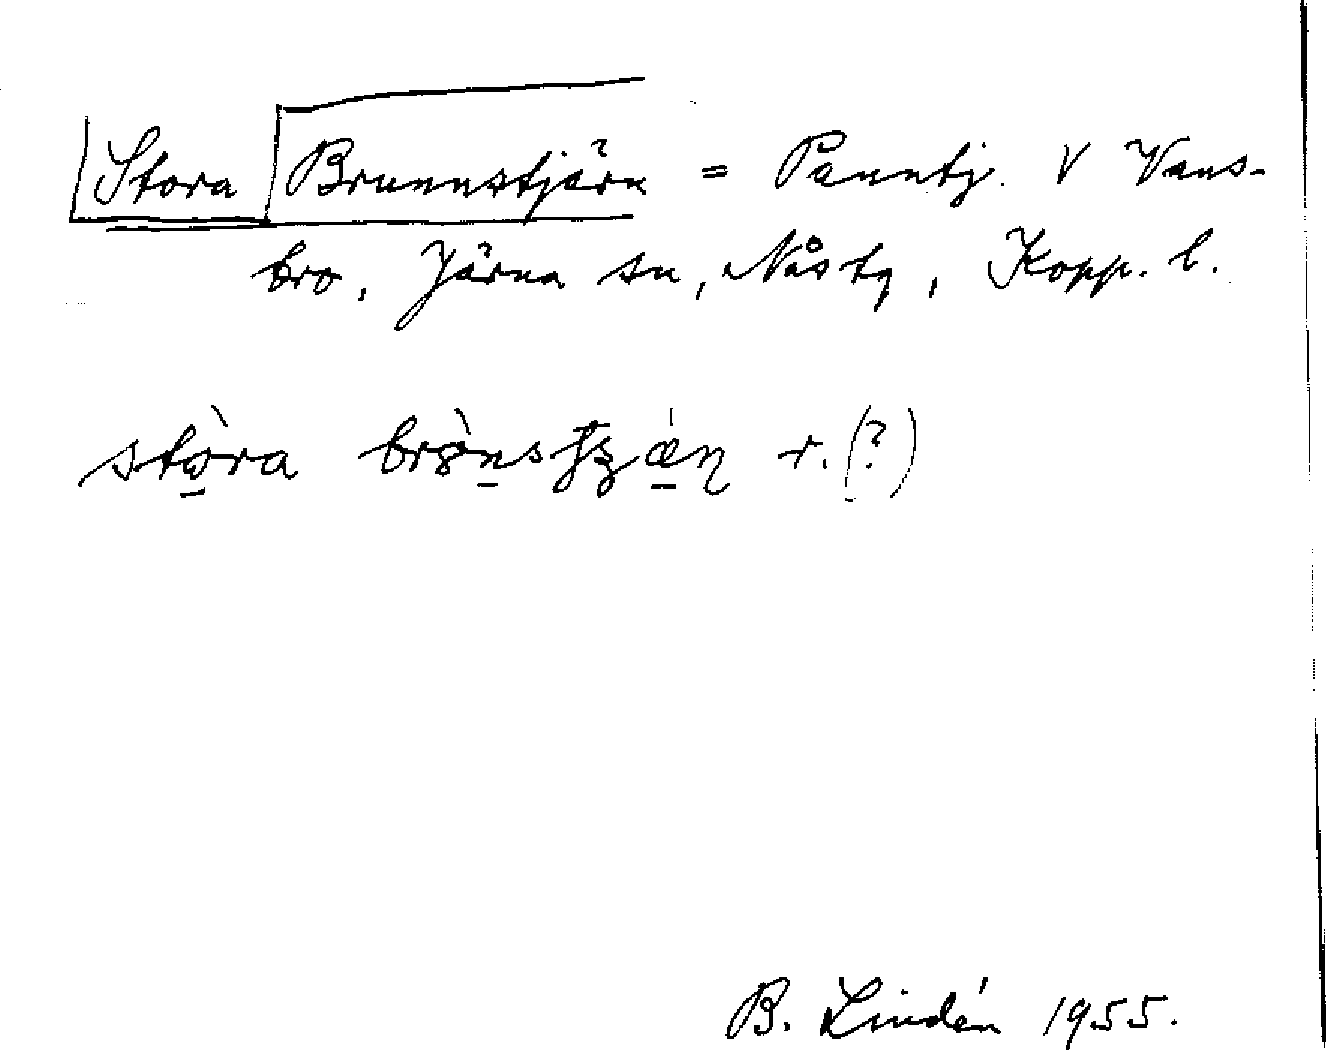 Stora Brunnstjärn = Panntj. V Vans-
bro, Järna sn, Nås tg, Kopp. l.
stɷ̀ra r. (?)
B. Lindén 1955.